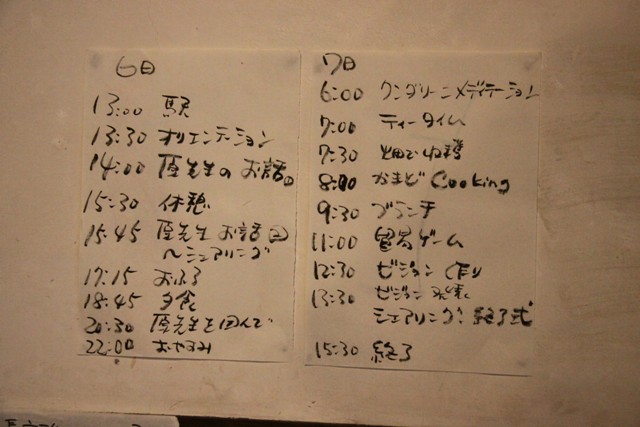 6日
13:00 駅
13:30 オリエンテーション
14:00 原先生のお話①
15:30 休憩
15:45 原先生 お話②
〜シェアリング
17:15 おふろ
18:45 夕食
20:30 原先生を囲んで
22:00 おやすみ
7日
6:00 クンダリーニメディテーション
7:00 ティータイム
7:30 畑で収穫
8:00 かまど Cooking
9:30 ブランチ
11:00 ゲーム
12:30 ビジョン作り
13:30 ビジョン発表
シェアリング 終了式
15:30 終了